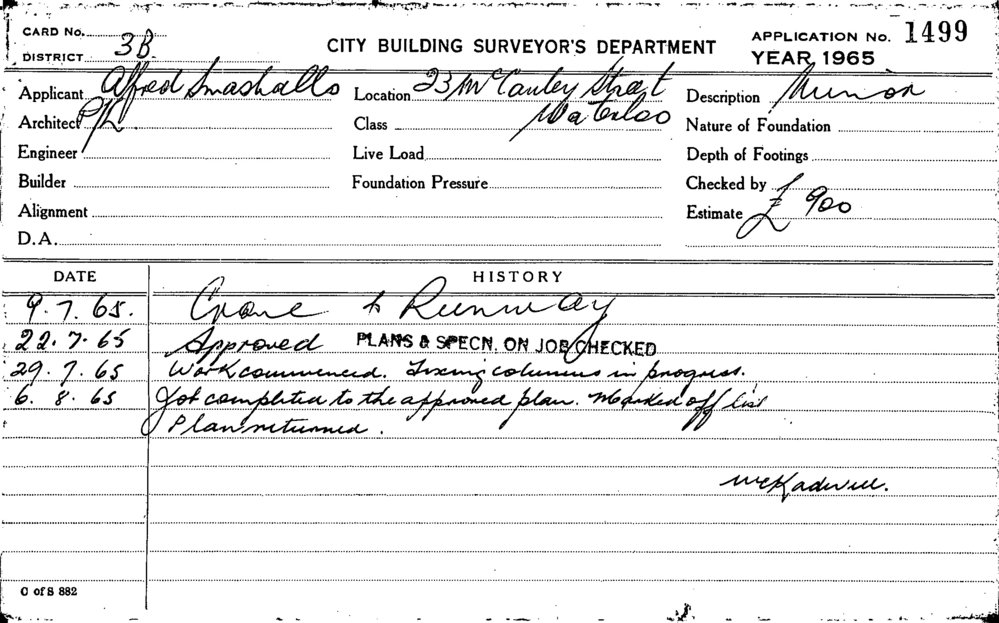 CARD No.
DISTRICT 3B
CITY BUILDING SURVEYOR'S DEPARTMENT
APPLICATION No. 1499
YEAR 1965
Applicant Alfred Smashalls
Location 23 McCauley Street
Waterloo
Description Minor
Architect P/L
Class
Nature of Foundation
Engineer
Live Load
Depth of Footings
Builder
Foundation Pressure
Checked by
Alignment
Estimate £ 900
D.A.
DATE
HISTORY
9.7.65. Crane & Runway
22.7.65 Approved PLANS & SPECN. ON JOB CHECKED
29.7.65 Work commenced. Fixing columns in progress.
6.8.65 Job completed to the approved plan. Marked off list
Plan returned.
C of S 882